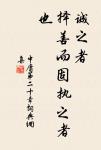 诚之者
择善而固执之者
也
中庸第二十章词典网
集